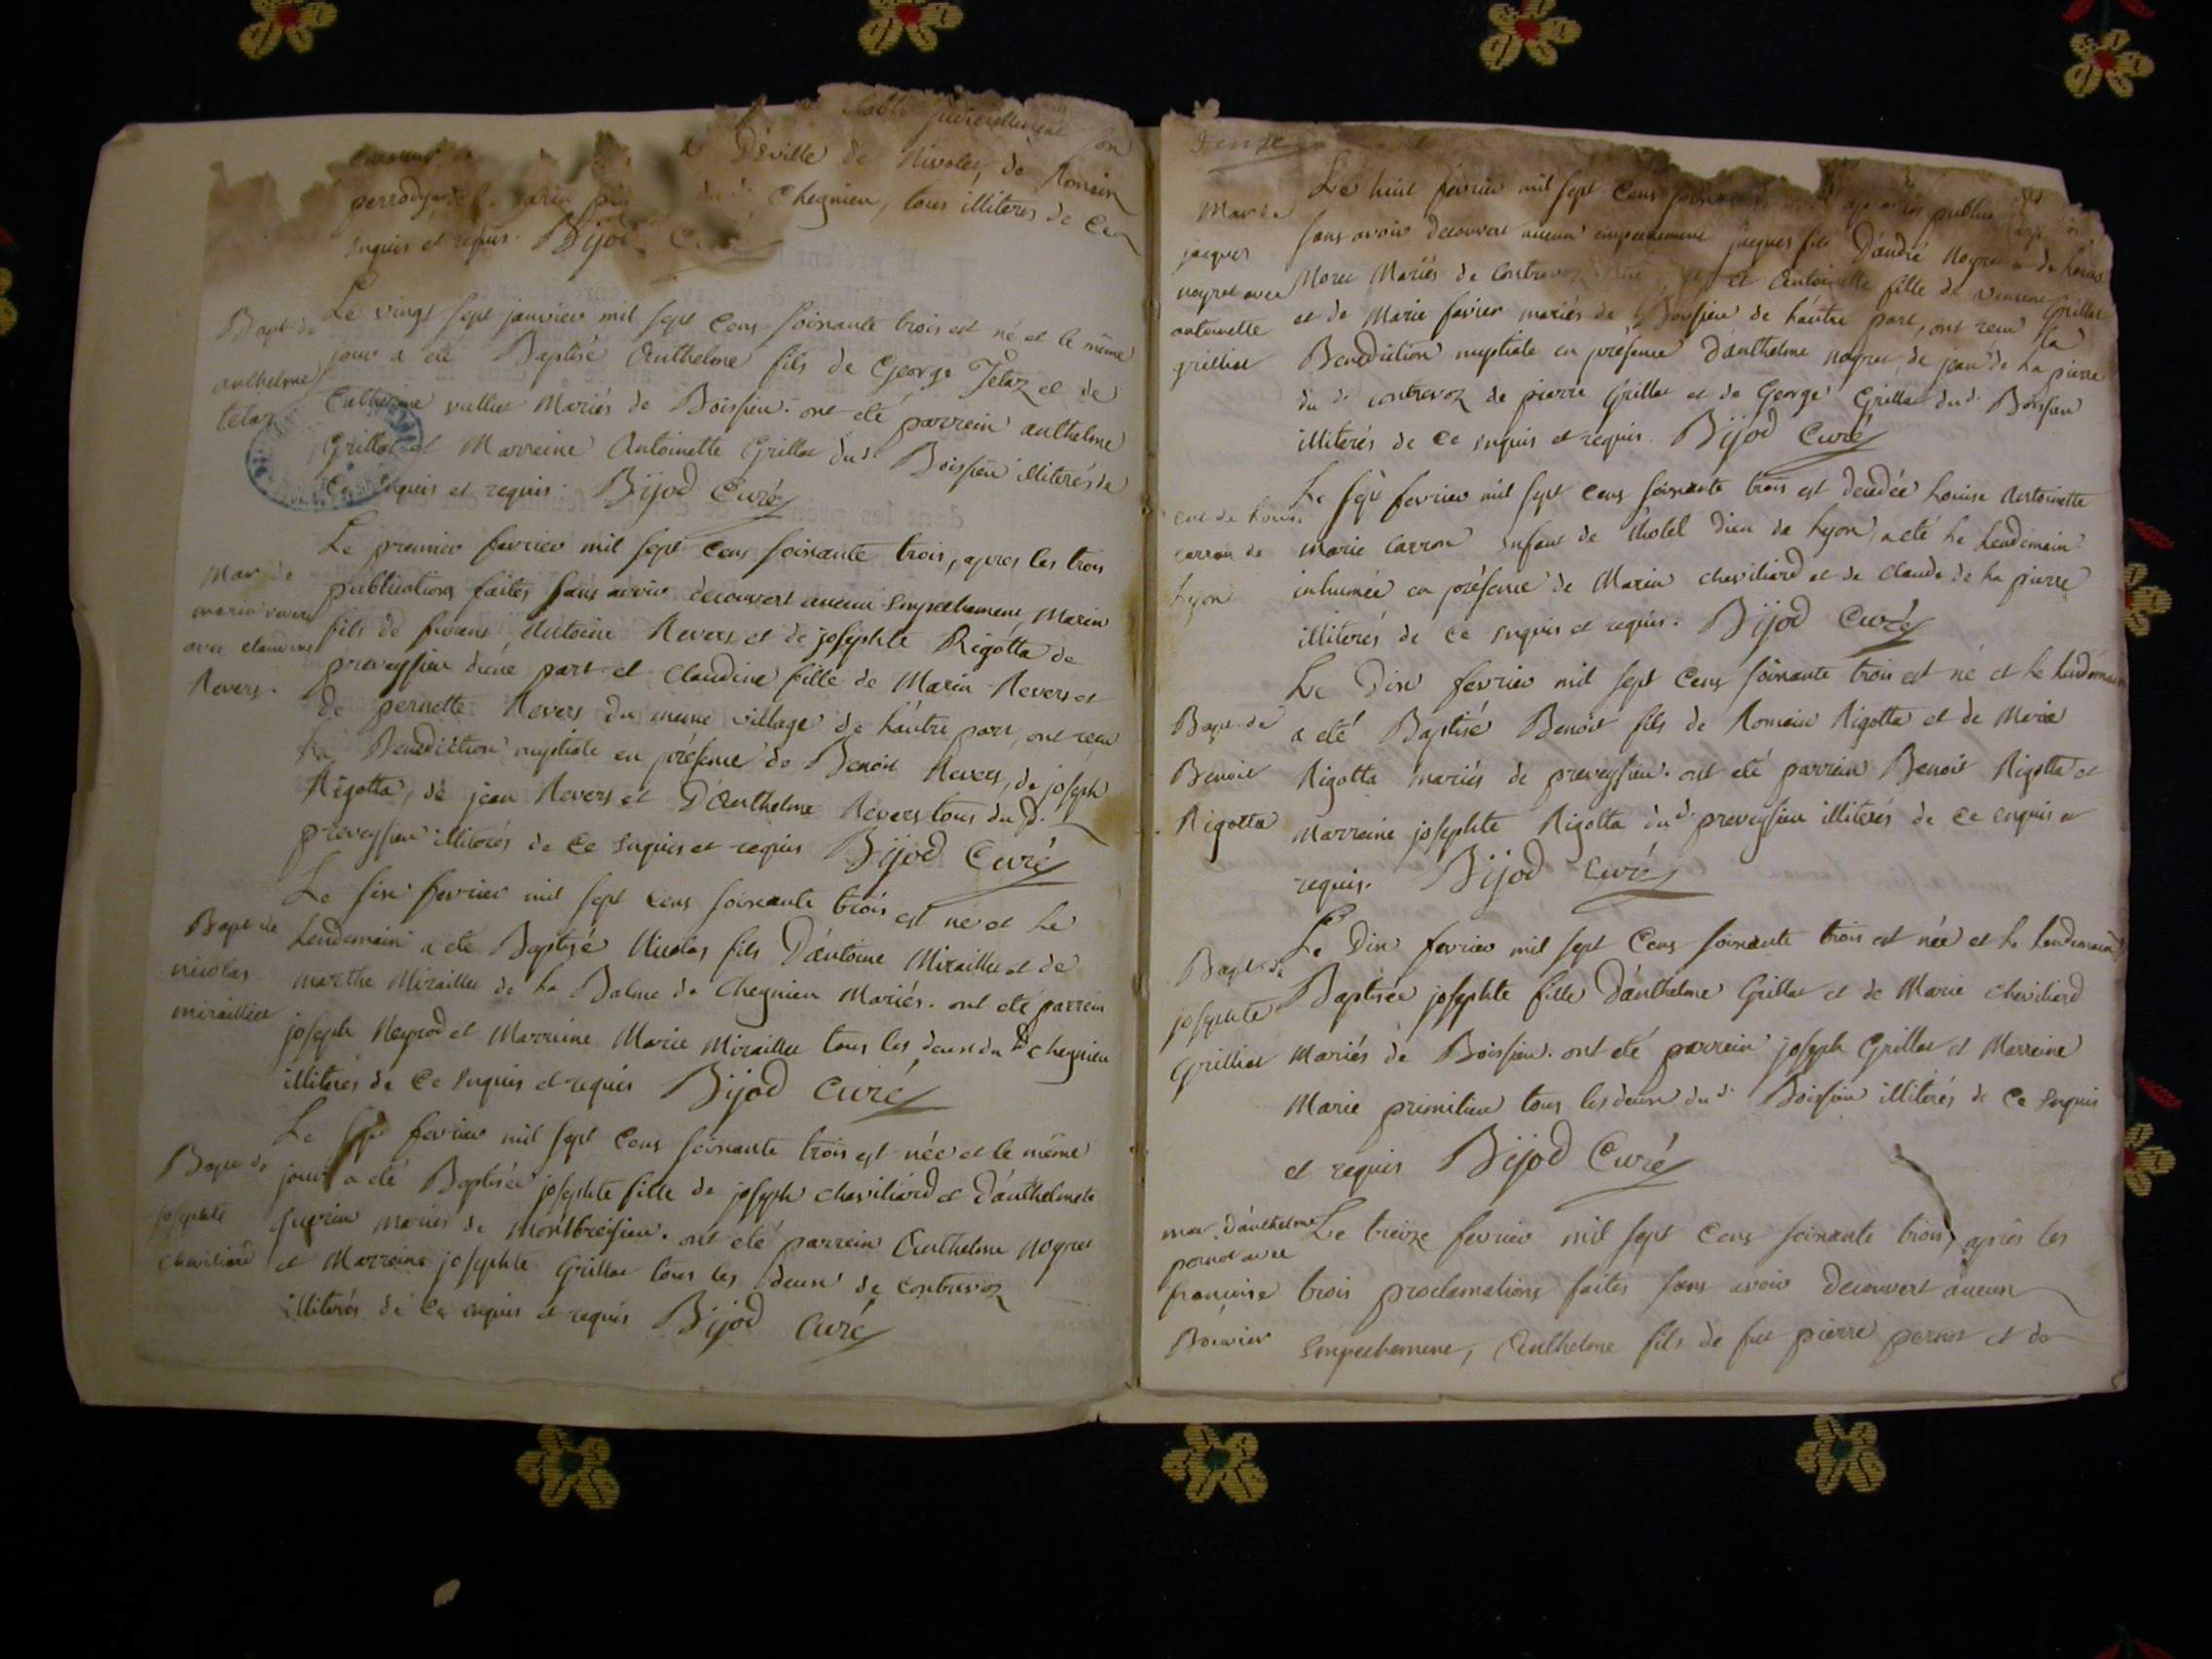 Déville de Nivoley, de Romain
Chegnieu, tous illiteres de Ce
enquis et requis. Bijod Curé
Bapt de
anthelme
telaz
Le vingt sept janvier mil sept Cens soixante trois est né et le même
jour a eté Baptisé Anthelme fils de George Telaz et de
Catherine vulliet Mariés de Boissieu. ont eté parrein anthelme
Grillat et Marreine Antoinette Grillat dud. Boissieu illiterés de
Ce enquis et requis. Bijod Curé
Mar de
marin revers
avec claudine
Revers.
Le premier fevrier mil sept Cens soixante trois, apres les trois
publications faites sans avoir decouvert aucun Empechement, Marin
fils de Antoine Revers et de josephte Rigotta de
preveyssieu d'une part et Claudine fille de Marin Revers et
de pernette Revers du meme village de l'autre part, ont recu
La Benediction nuptiale en présence de Benoit Revers, de joseph
Rigotta, de jean Revers et D'Anthelme Revers tous du d.
preveyssieu illiterés de Ce enquis et requis Bijod Curé
Bapt de
nicolas
mirailliet
Le six fevrier mil sept cens soixante trois est né et Le
Lendemain a eté Baptisé Nicolas fils D'antoine Miraillet et de
marthe Miraillet de La Balme de Chegnieu Mariés. ont eté parrein
joseph Neyrod et Marreine Marie Miraillet tous les deux du d. chegnieu
illiterés de Ce Enquis et requis Bijod Curé
Bapt de
josephte
cheviliard
Le sept fevrier mil sept Cens soixante trois est née et le même
jour a eté Baptisée josephte fille de joseph cheviliard et D'anthelmete
mariés de montbreisieu. ont eté parrein Anthelme noyret
et Marreine josephte Grillat tous les deux de contrevoz
illiterés de Ce enquis et requis Bijod Curé
Mar de
jacques
noyret avec
antoinette
grilliat
Le huit fevrier mil sept Cens
sans avoir decouvert aucun empechement jacques fils D'andré Noyret et de Louise
Moret Mariés de Contrevoz et Antoinette fille de vincent Grillat
et de Marie favier mariés de Boissieu de l'autre part, ont recu la
Benediction nuptiale en présence D'anthelme noyret, de jean de La pierre
du d. contrevoz de pierre Grillat et de George Grillat dud. Boissieu
illiterés de Ce enquis et requis. Bijod Curé
carron de
Lyon
Le sept fevrier mil sept Cens soixante trois est decedée Louise Antoinette
Marie Carron Enfant de l'hotel Dieu de Lyon, a eté Le Lendemain
inhumée en présence de Marin cheviliard et de claude de La pierre
illiterés de Ce enquis et requis. Bijod Curé
Bapt de
Benoit
Rigotta
Le Dix fevrier mil sept Cens soixante trois est né et Le Lendemain
a eté Baptisé Benoit fils de Romain Rigotta et de Marie
Rigotta mariés de preveyssieu. ont eté parrein Benoit Rigotta et
Marreine josephte Rigotta dud. preveyssieu illiterés de Ce enquis et
requis. Bijod Curé
Bapt de
josephte
Grilliat
Le Dix fevrier mil sept Cens soixante trois est née et Le Lendemain
Baptisée josephte fille D'anthelme Grillat et de Marie cheviliard
Mariés de Boissieu. ont eté parrein joseph Grillat et Marreine
Marie tous les deux du d. Boissieu illiterés de Ce Enquis
et requis Bijod Curé
mar. D'anthelme
pernot avec
francoise
Bouvier
Le treize fevrier mil sept Cens soixante trois, après les
trois proclamations faites sans avoir decouvert aucun
Empechement, Anthelme fils de feu pierre pernot et de